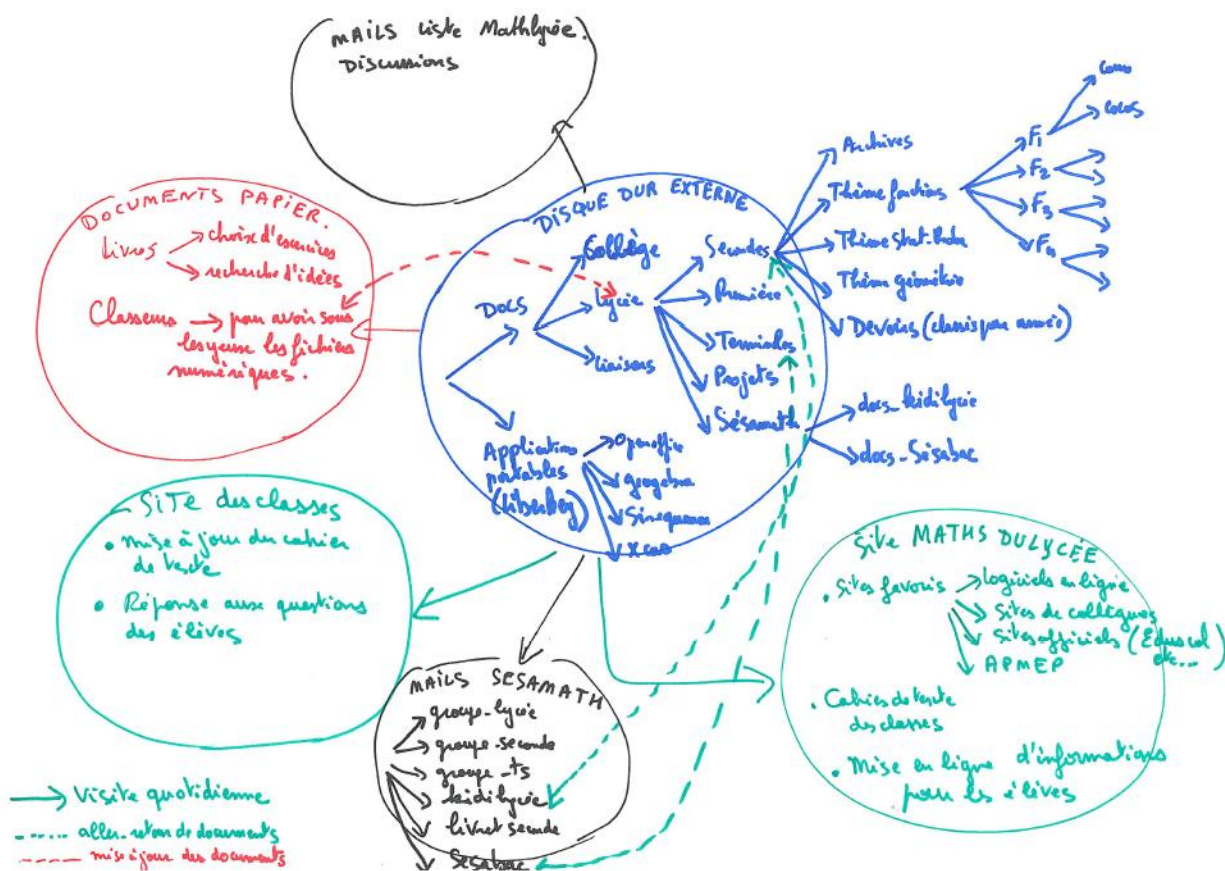 MAILS liste Mathlycée.
Discussions
DOCUMENTS PAPIER.
Livres
choix d'exercices
recherche d'idées
Classeurs
pour avoir sous
les yeux les fichiers
numériques.
DISQUE DUR EXTERNE
DOCS
Collège
Lycée
liaisons
Secondes
Première
Terminales
Projets
Sésamath
Archives
Thème fonctions
Thème Stat-Proba
Thème géométrie
Devoirs (classés par année)
F1
F2
F3
F4
Cours
docs_kidilycée
docs_Sésabac
Applications
portables
Openoffice
geogebra
Sinequanon
Xcas
Site des classes
• mise à jour du cahier
de texte
• Réponse aux questions
des élèves
MAILS SESAMATH
groupe-lycée
groupe-seconde
groupe-ts
kidilycée
livret seconde
Sesabac
Site MATHS DU LYCÉE
• Sites favoris
logiciels en ligne
Sites de collègues
Sites officiels (Eduscol
etc...
APMEP
• Cahiers de texte
des classes
• Mise en ligne d'informations
pour les élèves
Visite quotidienne
aller-retour de documents
mise à jour des documents